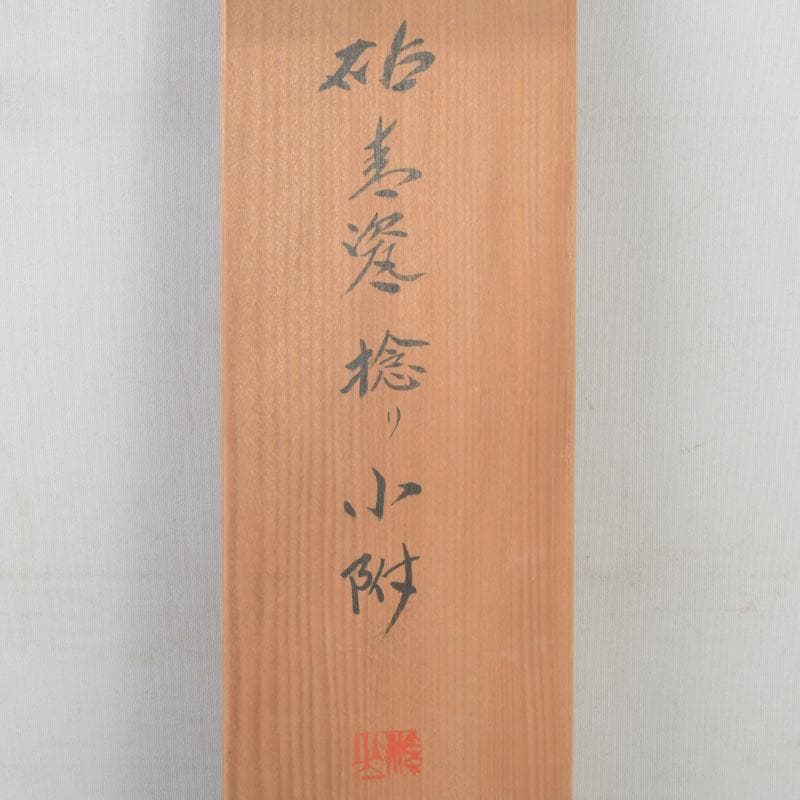 砧青瓷捻り小附